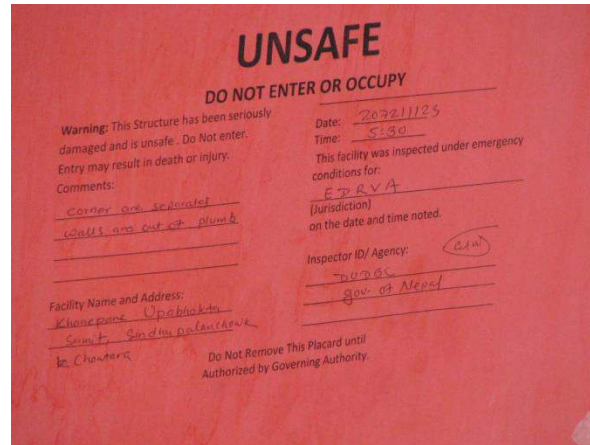 UNSAFE
DO NOT ENTER OR OCCUPY
Warning: This Structure has been seriously
damaged and is unsafe . Do Not enter.
Entry may result in death or injury.
Comments:
corner are separated
walls are out of plumb
Facility Name and Address:
Khanepane Upabhokta
Samit, Sindhupalanchowk
Chautara
Date: 2072/1/23
Time: 5:30
This facility was inspected under emergency
conditions for:
EDRVA
(Jurisdiction)
on the date and time noted.
Inspector ID/ Agency:
DUDBC
gov. of Nepal
Do Not Remove This Placard until
Authorized by Governing Authority.